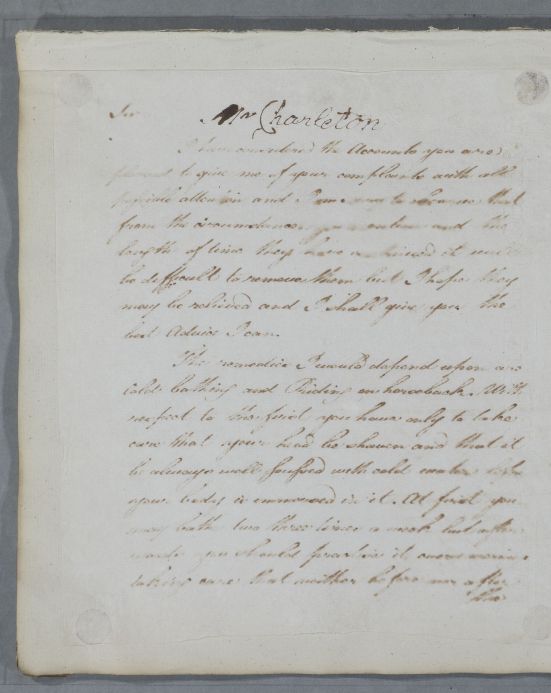 Mr Charleton
Sir
I have considered the Accounts you are
pleased to give me of your complaints with all
possible attention and I am sorry to observe that
from the circumstances you mention and the
length of time they have continued it will
be difficult to remove them but I hope they
may be relieved and I shall give you the
best Advice I can.
The remedies I would depend upon are
cold bathing and Riding on horseback. With
respect to the first you have only to take
care that your head be shaven and that it
be always well soused with cold water
your body is immersed in it. At first you
may bathe two three times a week but after
wards you should practise it every
taking care that neither before nor after
the